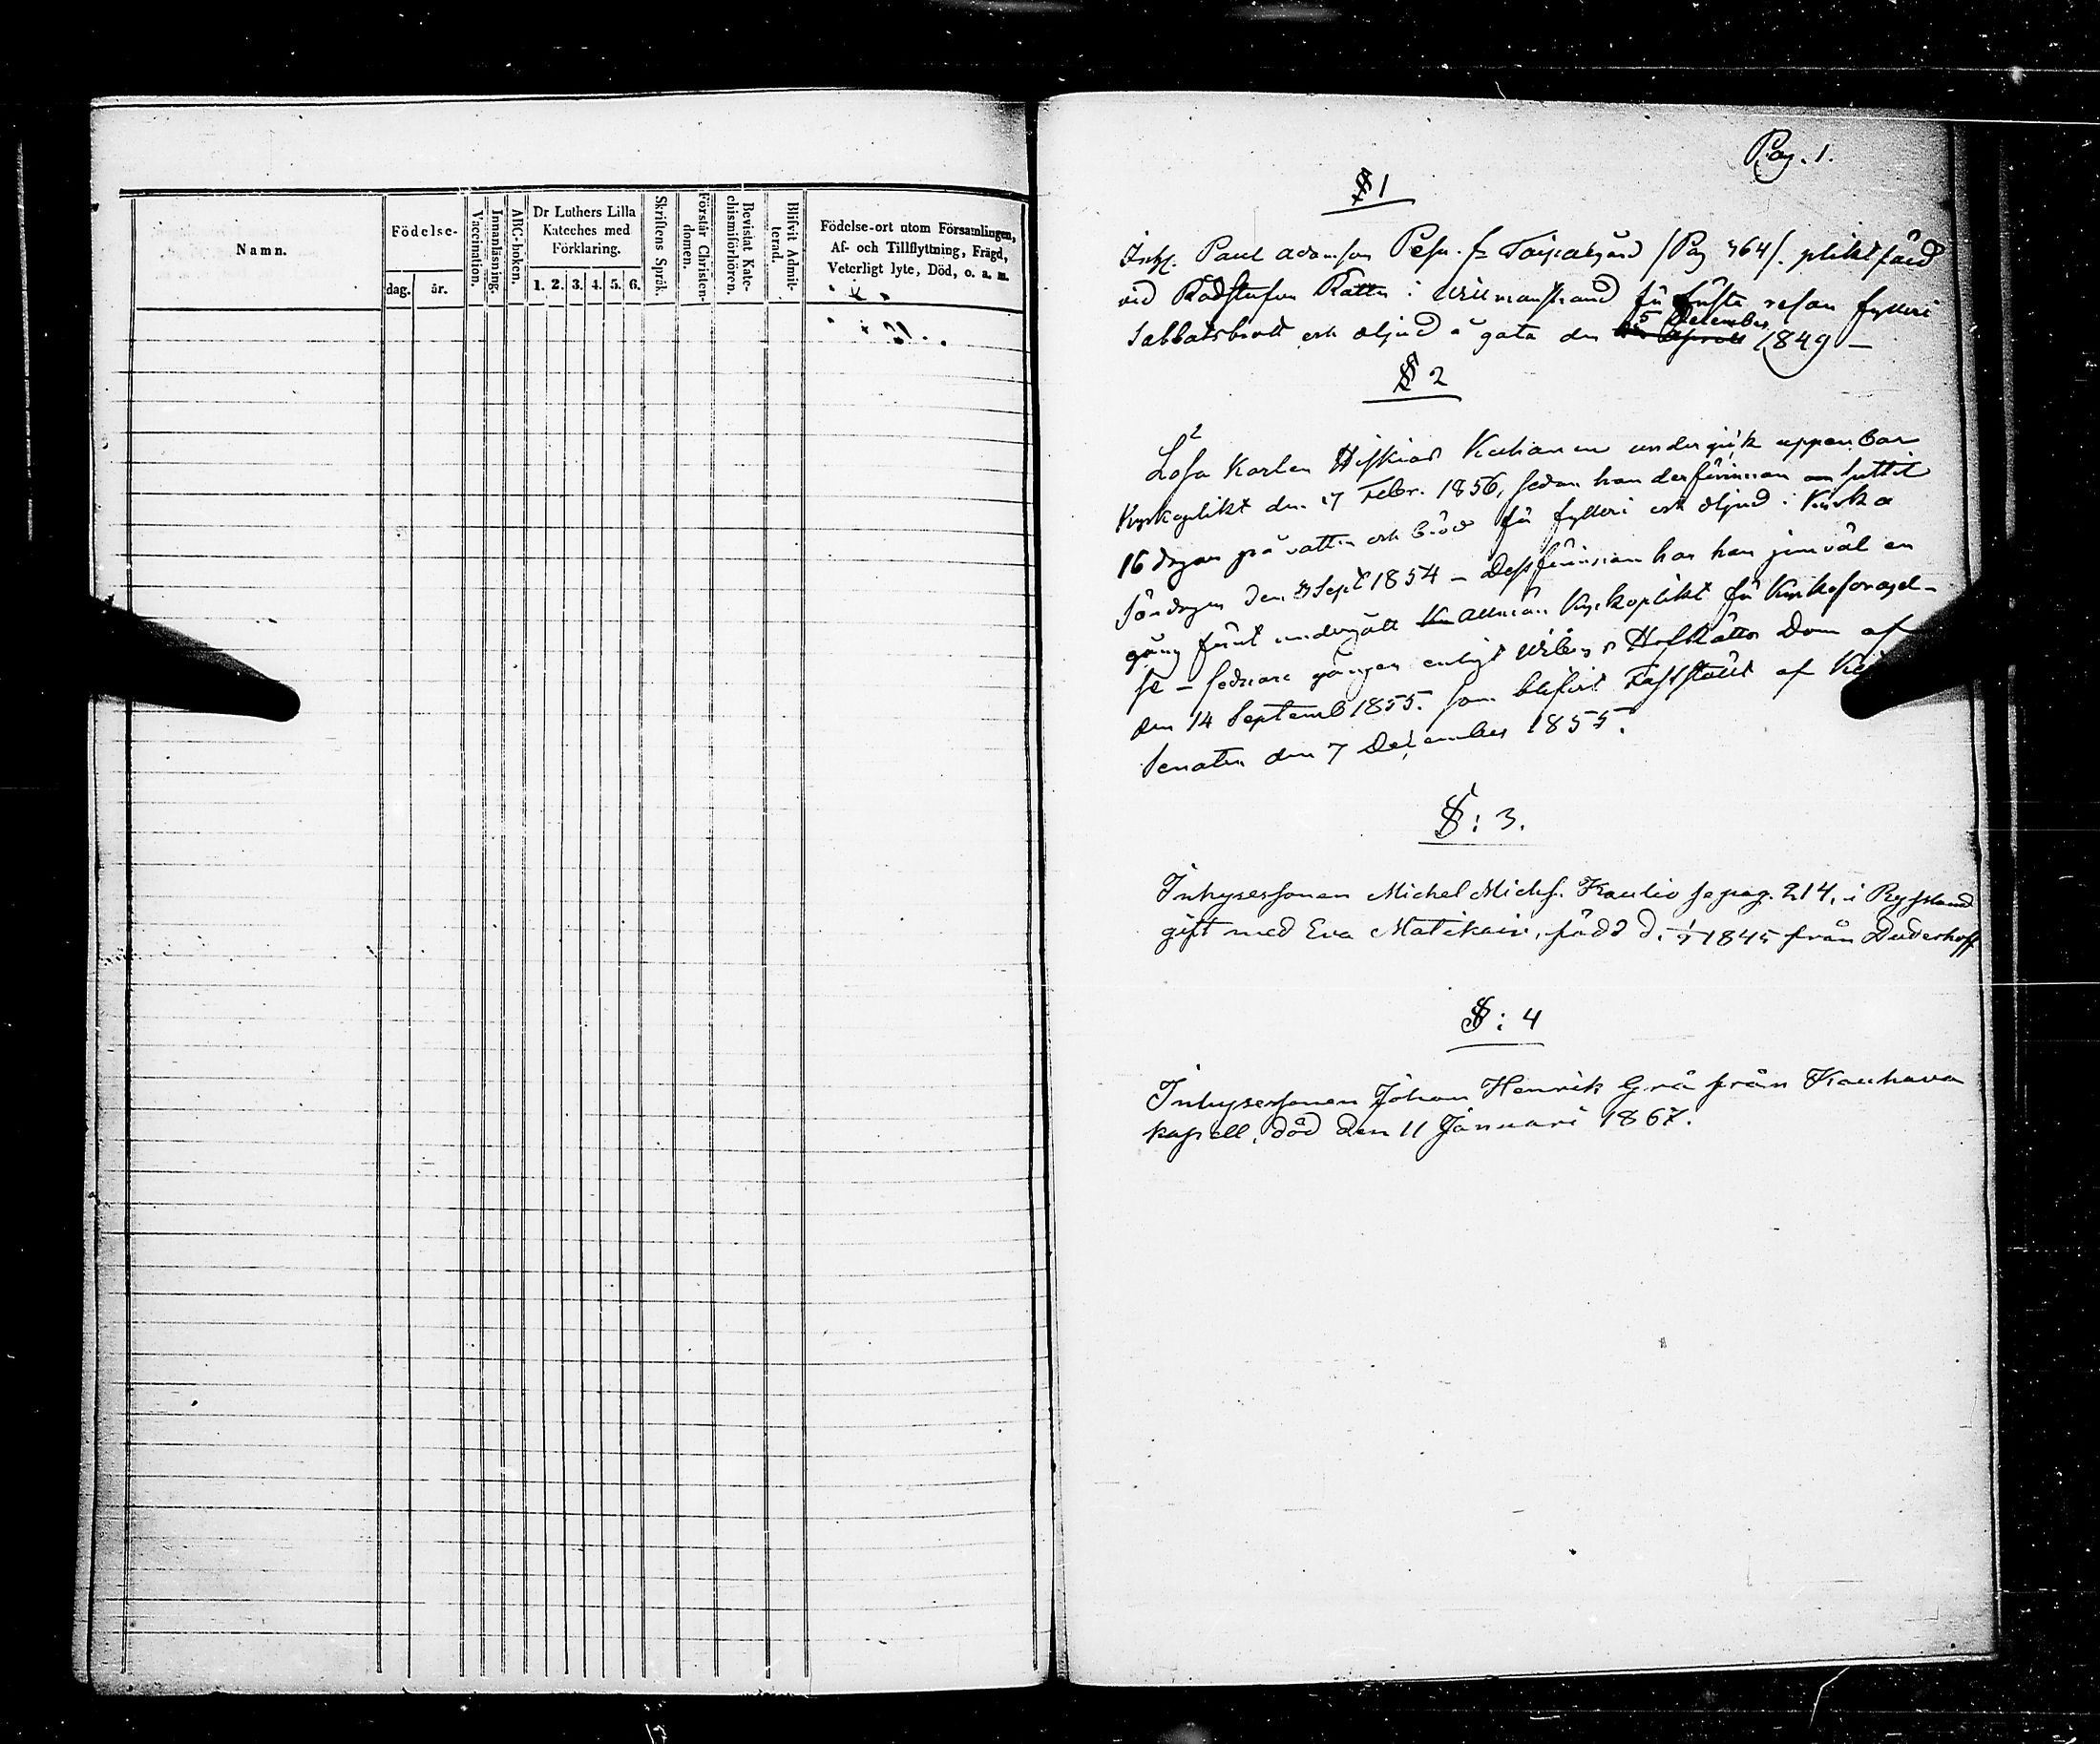 Namn.
Födelse-
dag.
år.
Vaccination.
Innanläsning.
ABC-boken.
Dr Luthers Lilla
Kateches med
Förklaring.
1. 2. 3. 4. 5. 6.
Skriftens Språk.
Förstår Christen-
domen.
Bevistat Kate-
chismiförhören.
Blifvit Admit-
terad.
Födelse-ort utom Församlingen,
Af- och Tillflyttning, Frägd,
Veterligt lyte, Död, o. a. m.
Pag. 1.
§ 1
Inh. Paul Adamson Pag 364 /. pliktfäld
vid Rådstufvu Rätten i Willmanstrand för första resan fylleri
Sabbatsbrott och oljud å gata den 5 December 1849 –
§ 2
Lösa Karlen Hiskias undergick uppenbar
Kyrkoplikt den 17 Febr. 1856, sedan han derförinnan suttit
16 dygn på vatten och bröd för fylleri och oljud i Kyrka
Söndagen den 3 Sept 1854 – Dessförinnan har han jemväl en
gång förut undergått Allmän Kyrkoplikt för
se – sednare gången enligt Wiborgs HofRätts Dom af
den 14 Septemb 1855. som blifvit fastställt af
Senaten den 7 December 1855.
§: 3.
Inhysessonen Michel Michs. Kaulio se pag. 214, i Ryssland
gift med Eva Matikain, född d. 1845 från Duderhoff
§: 4
Inhysessonen Johan Henrik Grå från Kauhava
kapell, död den 11 Januari 1867.